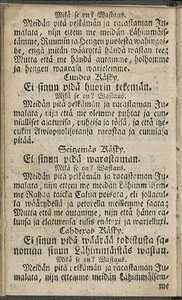 Mitä se on? Wastaus.
Meidän pitä pelkämän ja racastaman Ju-
malata, nijn ettem me meidän Lähimmäis-
tämme, Ruumin ja Hengen puolesta wahingoi-
tze, engä mitän wäärytä händä wastan tee:
Mutta että me händä autamme, holhomme
ja hengen waarasa warjelemme.
Cuudes Käsky.
Ei sinun pidä huorin tekemän.
Mitä se on? Wastaus.
Meidän pitä pelkämän ja racastaman Ju-
malata, nijn että me olemme puhtat ja cun-
nialliset puheisa ja töisä, ja että jo-
cukin Awiopuolisotansa racastaa ja cunnioja
pitää.
Seitzemäs Käsky.
Ei sinun pidä warastaman.
Mitä se on? Wastaus.
Meidän pitä pelkämän ja racastaman Ju-
malata, nijn etten me meidän Lähimmäisem-
me Rahaa taicka Calua poisota, eli jollaculla
wäärydellä ja petoxella meillemme saata;
Mutta että me autamme, nijn että hänen ca-
lunsa ja elatuxensa tulis enätyxi ja warjelluxi.
Cahdexas Käsky.
Ei sinun pidä wäärää todistusta sa-
noman sinun Lähimmäistäs wastan.
Mitä se on? Wastaus.
Meidän pitä pelkämän ja racastaman Ju-
malata, nijn ettemme meidän Lähimmäisem-
me